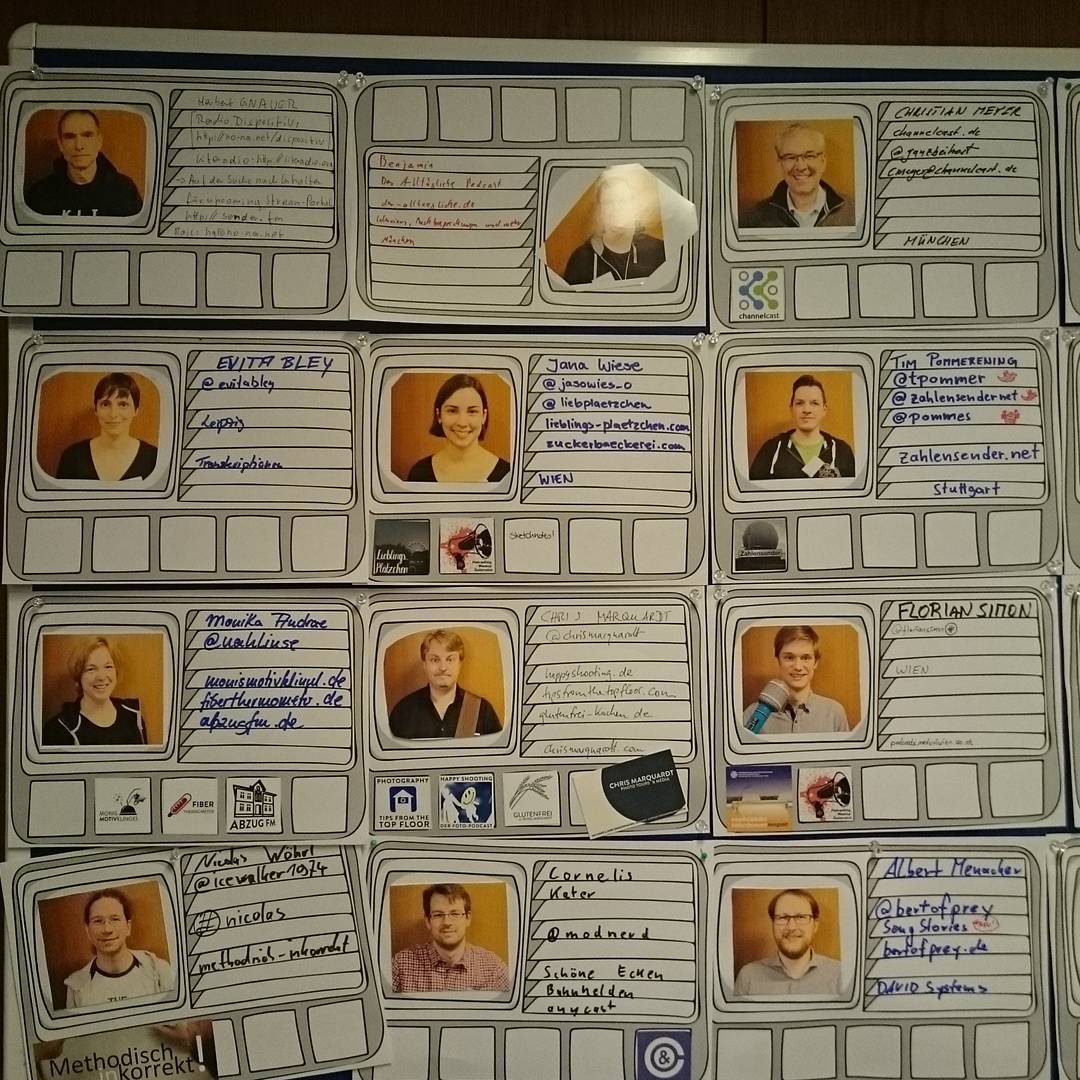 Herbert GNAUER
Radio Dispositiv:
http://no-na.net/dispositiv
Literadio: http://literadio.org
→ Auf der Suche nach Inhalten
für upcoming Stream-Portal
http://sender.fm
Mail: ha@no-na.net
KIT
Benjamin
Der Alltägliche Podcast
der-alltaegliche.de
Interviews, Buchbesprechungen und mehr
München
CHRISTIAN MEYER
channelcast.de
@ganzbeihart
cmeyer@channelcast.de
MÜNCHEN
channelcast
EVITA BLEY
@evitabley
Leipzig
Transkriptionen
Jana Wiese
@jasowies_o
@liebplaetzchen
lieblings-plaetzchen.com
zuckerbaeckerei.com
WIEN
Lieblings
Plätzchen
Sketchnotes!
TIM POMMERENING
@tpommer
@zahlensendernet
@pommes
zahlensender.net
Stuttgart
Zahlensender
Monika Andrae
@nahlinse
monismotivklingel.de
fiberthermometer.de
abzugfm.de
MONIS
MOTIVKLINGEL
FIBER
THERMOMETER
ABZUG FM
CHRIS MARQUARDT
@chrismarquardt
happyshooting.de
tipsfromthetopfloor.com
glutenfrei-kochen.de
chrismarquardt.com
PHOTOGRAPHY
TIPS FROM THE
TOP FLOOR
HAPPY SHOOTING
DER FOTO-PODCAST
GLUTENFREI
CHRIS MARQUARDT
PHOTO TOURS & MEDIA
FLORIAN SIMON
WIEN
Nicolas Wöhrl
@icewalker1974
nicolas
methodisch-inkorrekt
THE
Methodisch
inkorrekt!
Cornelis
Kater
@modnerd
Schöne Ecken
Bahnhelden
anycast
&
Albert Menacher
@bertofprey
Song Stories
bertofprey.de
DAVID Systems